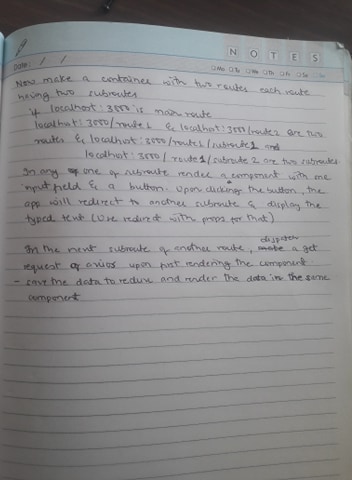 NOTES
Date: / /
Mo Tu We Th Fr Sa Su
Now make a container with two routes each route
having two subroutes
if localhost: 3000 is main route
localhost: 3000/route 1 & localhost: 3000/route 2 are two
routes & localhost: 3000/route 1/subroute 1 and
localhost: 3000/route 1/subroute 2 are two subroutes.
In any one of subroute render a component with one
input field & a button. Upon clicking the button, the
app will redirect to another subroute & display the
typed text (Use redirect with props for that)
dispatch
In the next subroute of another route, a get
request of axios upon first rendering the component.
- save the data to redux and render the data in the same
component